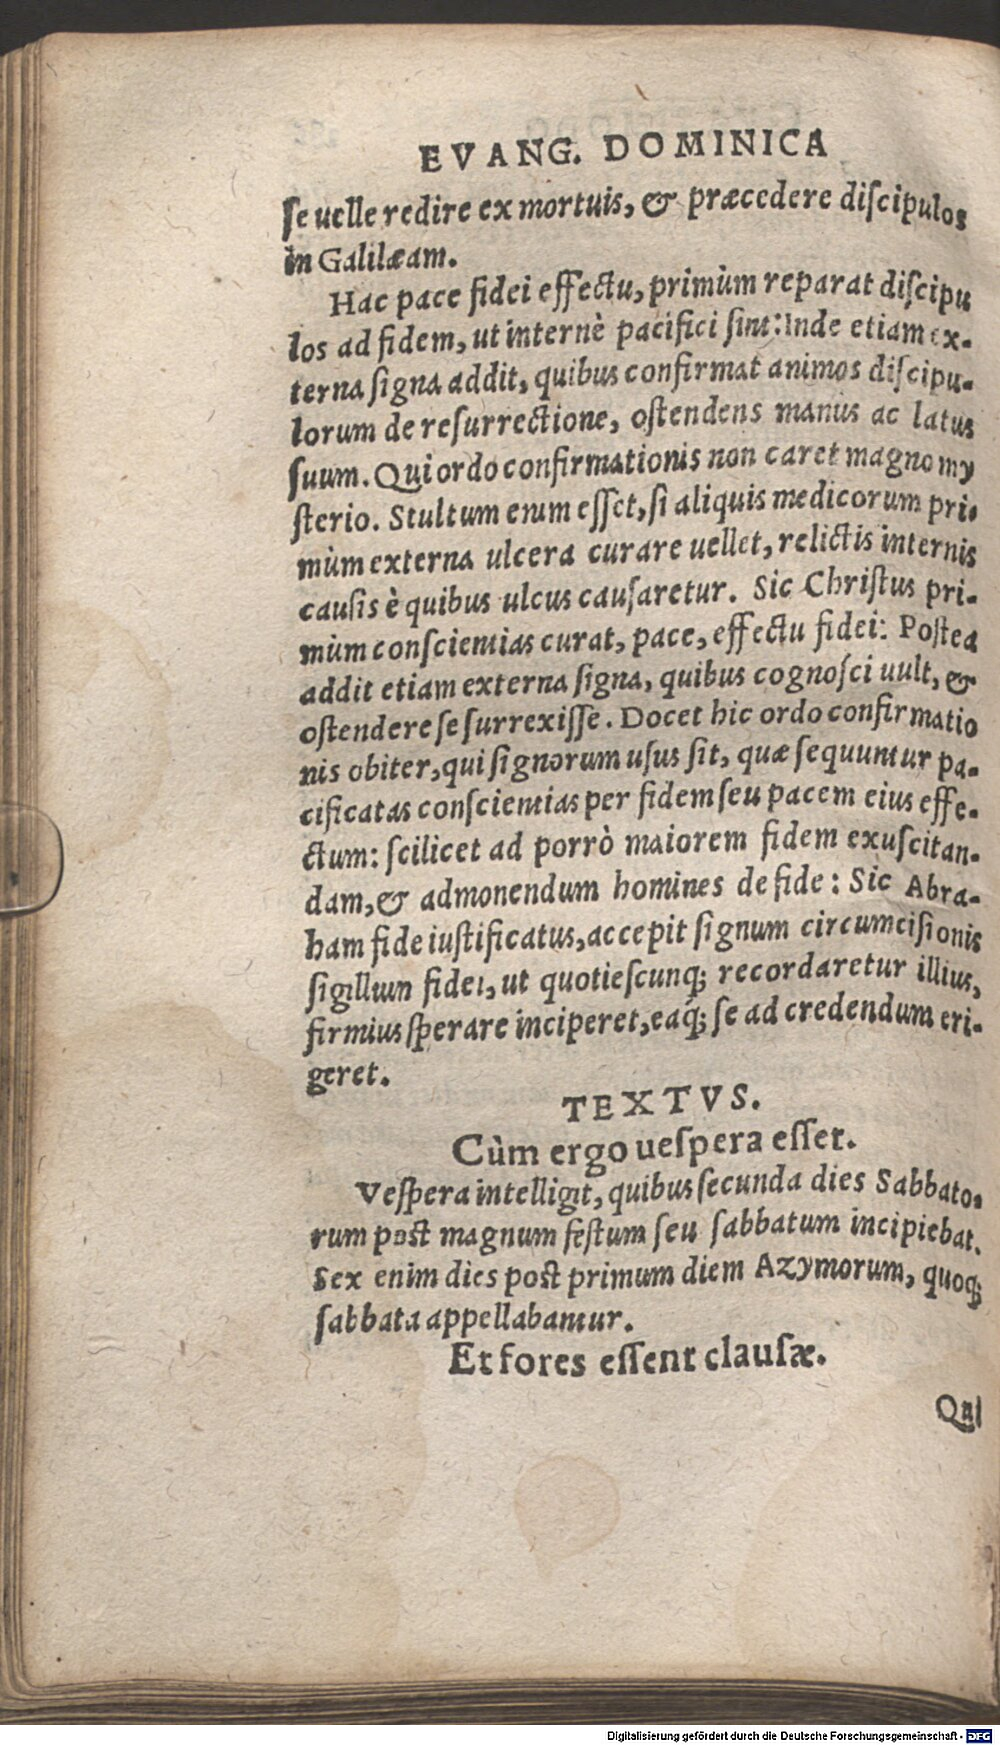 EVANG. DOMINICA
ſe uelle redire ex mortuis, & præcedere diſcipulos
in Galilæam.
Hac pace fidei effectu, primùm reparat diſcipu
los ad fidem, ut internè pacifici ſint: Inde etiam ex-
terna ſigna addit, quibus confirmat animos diſcipu-
lorum de reſurrectione, oſtendens manus ac latus
ſuum. Qui ordo confirmationis non caret magno my
ſterio. Stultum enim eſſet, ſi aliquis medicorum pri-
mùm externa ulcera curare uellet, relictis internis
cauſis è quibus ulcus cauſaretur. Sic Chriſtus pri-
mùm conſcientias curat, pace, effectu fidei: Poſtea
addit etiam externa ſigna, quibus cognoſci uult, &
oſtendere ſe ſurrexiſſe. Docet hic ordo confirmatio
nis obiter, qui ſignorum uſus ſit, quæ ſequuntur pa-
cificatas conſcientias per fidem ſeu pacem eius effe-
ctum: ſcilicet ad porrò maiorem fidem exuſcitan-
dam, & admonendum homines de fide: Sic Abra-
ham fide iuſtificatus, accepit ſignum circumciſionis
ſigillum fidei, ut quotieſcunq; recordaretur illius,
firmius ſperare inciperet, eaq́; ſe ad credendum eri-
geret.
TEXTVS.
Cùm ergo ueſpera eſſet.
Veſpera intelligit, quibus ſecunda dies Sabbato-
rum poſt magnum feſtum ſeu ſabbatum incipiebat.
Sex enim dies poſt primum diem Azymorum, quoq;
ſabbata appellabantur.
Et fores eſſent clauſæ.
Qui
Digitalisierung gefördert durch die Deutsche Forschungsgemeinschaft - DFG